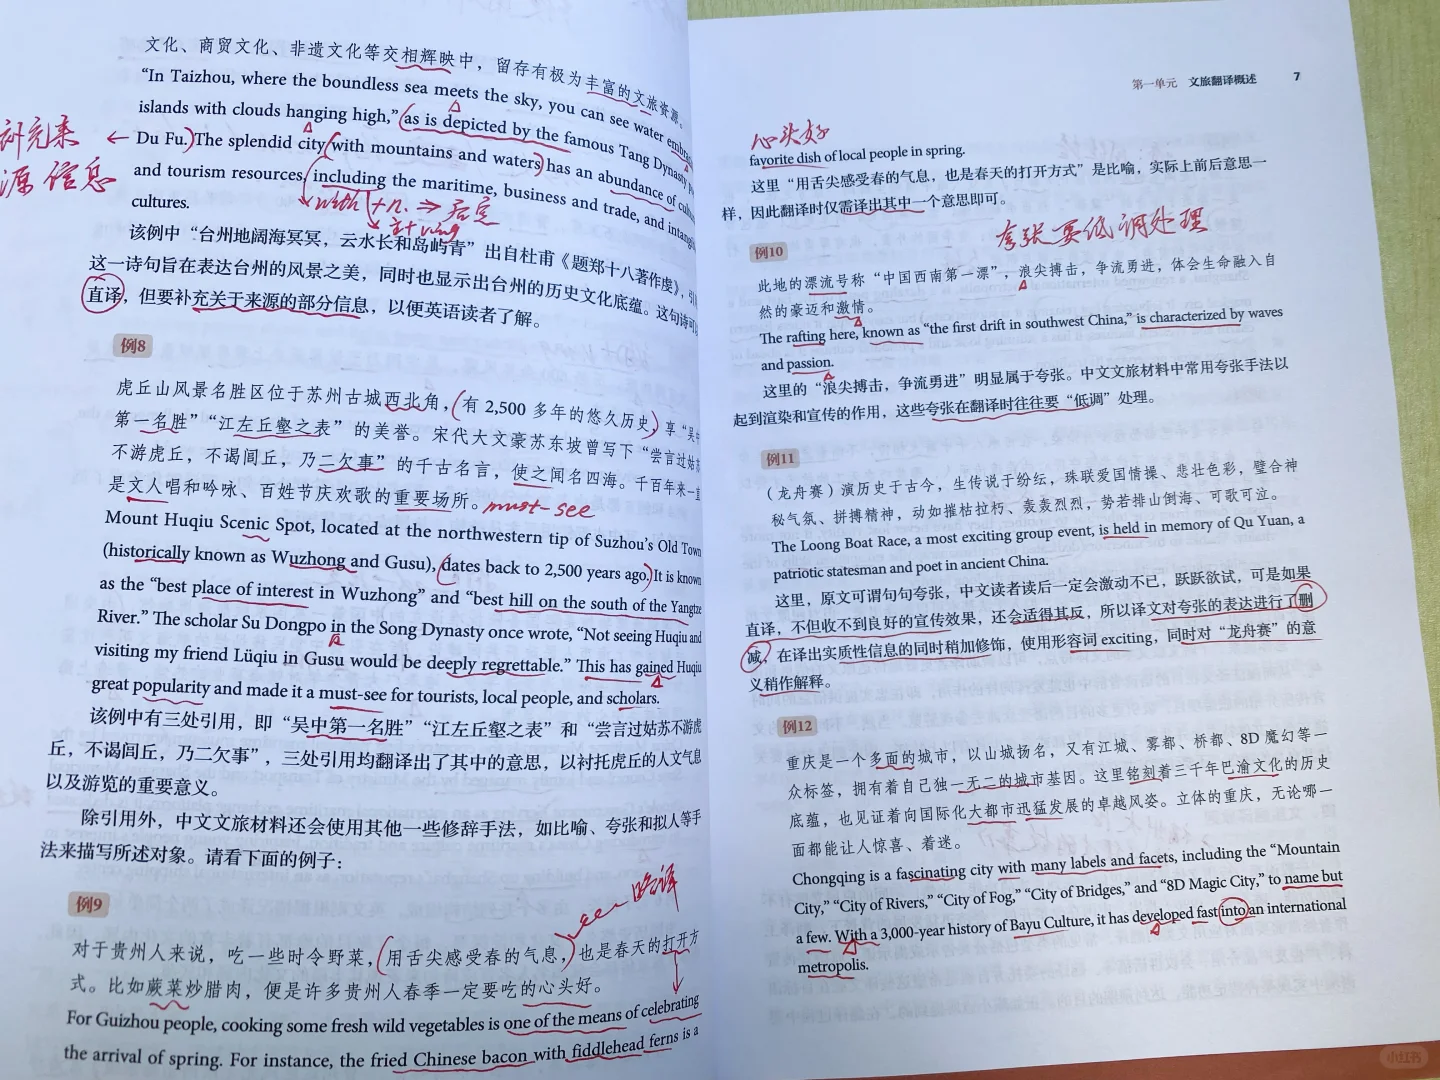 文化、商贸文化、非遗文化等交相辉映中，留存有极为丰富的文旅资源。
“In Taizhou, where the boundless sea meets the sky, you can see water
islands with clouds hanging high,” as is depicted by the famous Tang Dynasty
补充来
源信息
Du Fu. The splendid city with mountains and waters has an abundance of
and tourism resources, including the maritime, business and trade, and
cultures.
with + n. ⇒ 后定
该例中“台州地阔海冥冥，云水长和岛屿青”出自杜甫《题郑十八著作虔》，引
这一诗句旨在表达台州的风景之美，同时也显示出台州的历史文化底蕴。这句诗可
直译，但要补充关于来源的部分信息，以便英语读者了解。
例8
虎丘山风景名胜区位于苏州古城西北角，有 2,500 多年的悠久历史，享“吴中
第一名胜”“江左丘壑之表”的美誉。宋代大文豪苏东坡曾写下“尝言过姑苏
不游虎丘，不谒闾丘，乃二欠事”的千古名言，使之闻名四海。千百年来一直
是文人唱和吟咏、百姓节庆欢歌的重要场所。
must-see
Mount Huqiu Scenic Spot, located at the northwestern tip of Suzhou’s Old Town
(historically known as Wuzhong and Gusu), dates back to 2,500 years ago. It is known
as the “best place of interest in Wuzhong” and “best hill on the south of the Yangtze
River.” The scholar Su Dongpo in the Song Dynasty once wrote, “Not seeing Huqiu and
visiting my friend Lüqiu in Gusu would be deeply regrettable.” This has gained Huqiu
great popularity and made it a must-see for tourists, local people, and scholars.
该例中有三处引用，即“吴中第一名胜”“江左丘壑之表”和“尝言过姑苏不游虎
丘，不谒闾丘，乃二欠事”，三处引用均翻译出了其中的意思，以衬托虎丘的人文气息
以及游览的重要意义。
除引用外，中文文旅材料还会使用其他一些修辞手法，如比喻、夸张和拟人等手
法来描写所述对象。请看下面的例子：
例9
略译
对于贵州人来说，吃一些时令野菜，用舌尖感受春的气息，也是春天的打开方
式。比如蕨菜炒腊肉，便是许多贵州人春季一定要吃的心头好。
For Guizhou people, cooking some fresh wild vegetables is one of the means of celebrating
the arrival of spring. For instance, the fried Chinese bacon with fiddlehead ferns is a
第一单元 文旅翻译概述 7
心头好
favorite dish of local people in spring.
这里“用舌尖感受春的气息，也是春天的打开方式”是比喻，实际上前后意思一
样，因此翻译时仅需译出其中一个意思即可。
夸张要低调处理
例10
此地的漂流号称“中国西南第一漂”，浪尖搏击，争流勇进，体会生命融入自
然的豪迈和激情。
The rafting here, known as “the first drift in southwest China,” is characterized by waves
and passion.
这里的“浪尖搏击，争流勇进”明显属于夸张。中文文旅材料中常用夸张手法以
起到渲染和宣传的作用，这些夸张在翻译时往往要“低调”处理。
例11
（龙舟赛）演历史于古今，生传说于纷纭，珠联爱国情操、悲壮色彩，璧合神
秘气氛、拼搏精神，动如摧枯拉朽、轰轰烈烈，势若排山倒海、可歌可泣。
The Loong Boat Race, a most exciting group event, is held in memory of Qu Yuan, a
patriotic statesman and poet in ancient China.
这里，原文可谓句句夸张，中文读者读后一定会激动不已，跃跃欲试，可是如果
直译，不但收不到良好的宣传效果，还会适得其反，所以译文对夸张的表达进行了删
减，在译出实质性信息的同时稍加修饰，使用形容词 exciting，同时对“龙舟赛”的意
义稍作解释。
例12
重庆是一个多面的城市，以山城扬名，又有江城、雾都、桥都、8D 魔幻等一
众标签，拥有着自己独一无二的城市基因。这里铭刻着三千年巴渝文化的历史
底蕴，也见证着向国际化大都市迅猛发展的卓越风姿。立体的重庆，无论哪一
面都能让人惊喜、着迷。
Chongqing is a fascinating city with many labels and facets, including the “Mountain
City,” “City of Rivers,” “City of Fog,” “City of Bridges,” and “8D Magic City,” to name but
a few. With a 3,000-year history of Bayu Culture, it has developed fast into an international
metropolis.
小红书